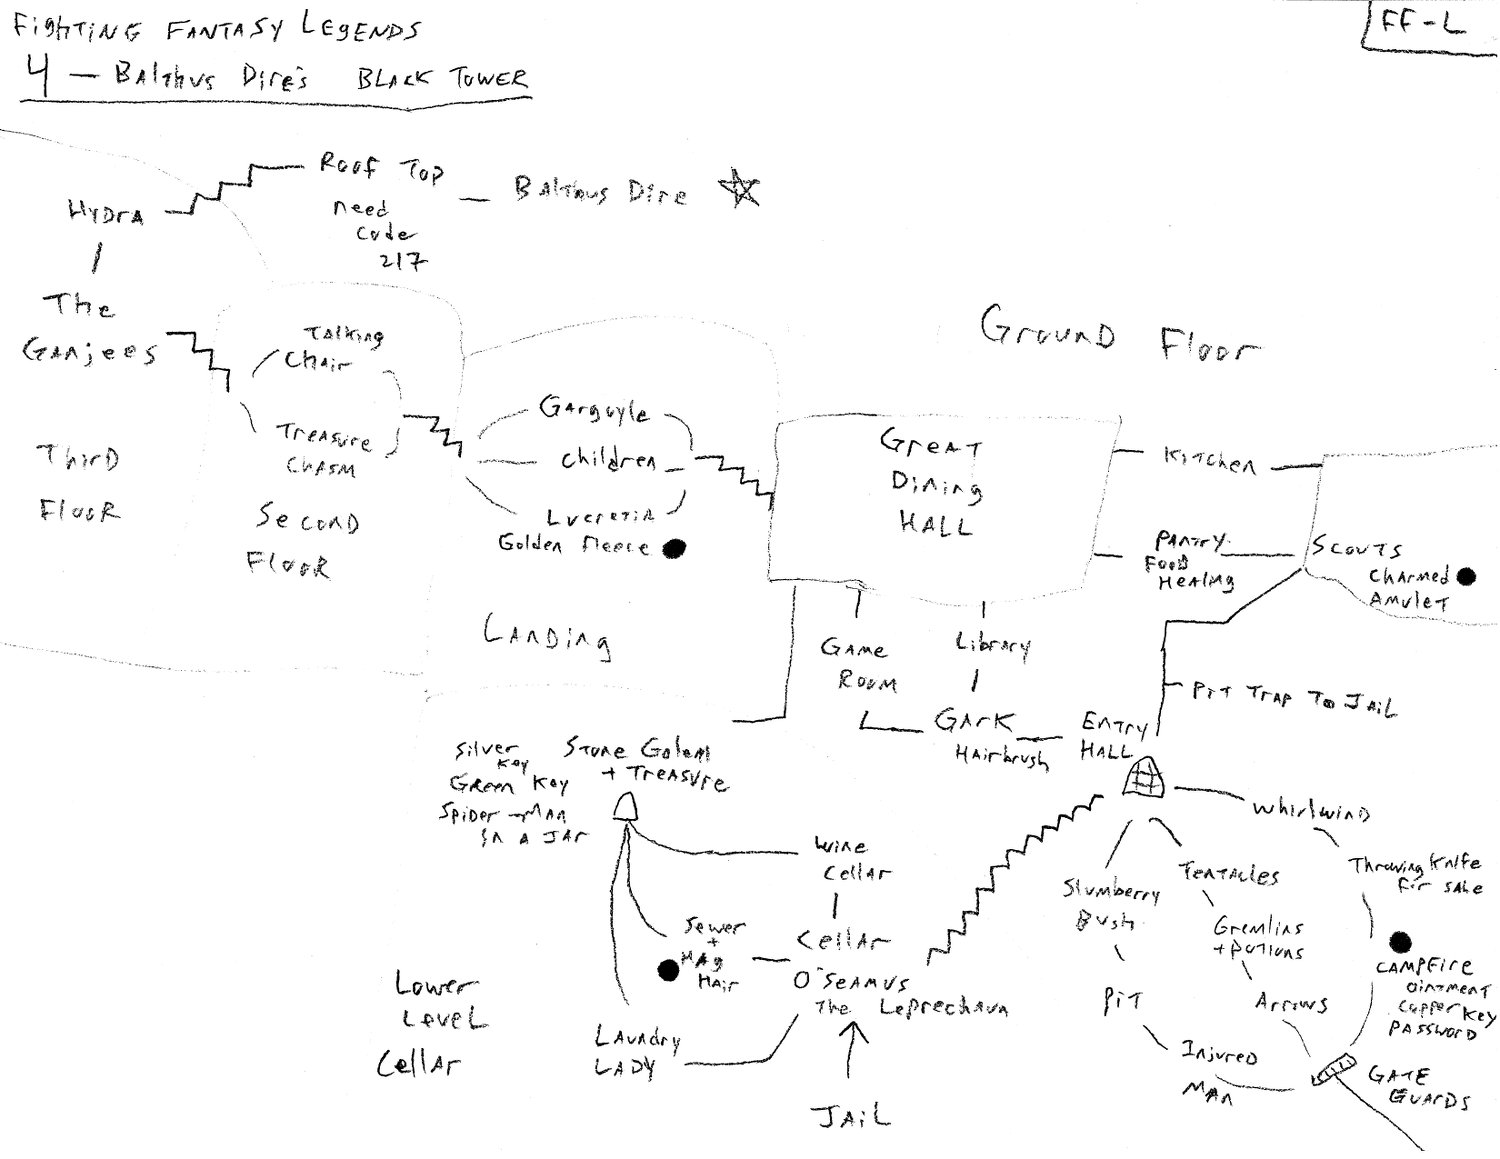 Fighting Fantasy Legends
FF-L
4 - Balthus Dire's Black Tower
Roof Top
Balthus Dire
Hydra
need
code
217
The
Ganjees
Third
Floor
Talking
Chair
Treasure
Chasm
Second
Floor
Gargoyle
Children
Lucretia
Golden Fleece
Landing
Ground Floor
Great
Dining
Hall
Kitchen
Pantry
Food
Healing
Scouts
Charmed
Amulet
Game
Room
Library
Gark
Hairbrush
Entry
Hall
Pit Trap To Jail
Silver
Key
Green Key
Spider-Man
in a Jar
Stone Golem
+ Treasure
Wine
Cellar
Sewer
+
Hag
Hair
Cellar
O'Seamus
The Leprechaun
Laundry
Lady
Jail
Lower
Level
Cellar
Whirlwind
Throwing Knife
for sale
Campfire
ointment
Copper Key
Password
Tentacles
Gremlins
+ Potions
Arrows
Slumberry
Bush
Pit
Injured
Man
Gate
Guards